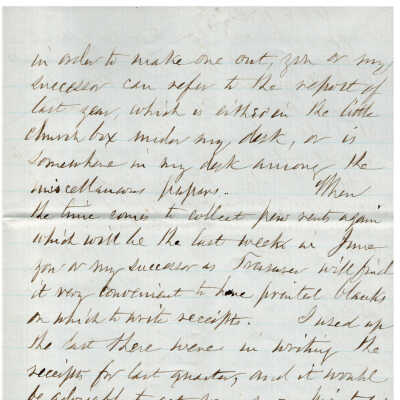 in order to make one out, you or my
successor can refer to the report of
last year, which is either in the little
church box under my desk, or is
somewhere in my desk among the
miscellaneous papers. When
the time comes to collect pew rents again
which will be the last week in June
you or my successor as Treasurer will find
it very convenient to have printed blanks
on which to write receipts. I used up
the last there were in writing the
receipts for last quarter, and it would
be